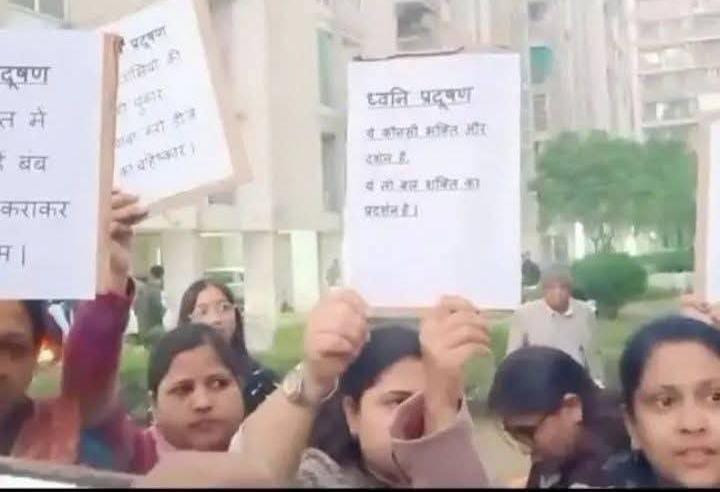 दूषण
त में
हैं बंब
कराकर
म।
प्रदूषण
की
पुकार
करो डीजे
का बहिष्कार।
ध्वनि प्रदूषण
ये कौनसी भक्ति और
दर्शन है,
ये तो बस शक्ति का
प्रदर्शन है।